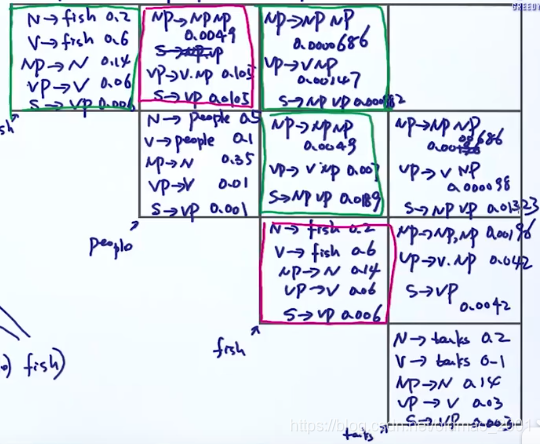 N→fish 0.2
V→fish 0.6
NP→N 0.14
VP→V 0.06
S→VP 0.006
NP→NP NP
0.0049
S→NP VP
VP→V NP 0.105
S→VP 0.0105
NP→NP NP
0.0000686
VP→V NP
0.00147
S→NP VP 0.000882
N→people 0.5
V→people 0.1
NP→N 0.35
VP→V 0.01
S→VP 0.001
NP→NP NP
0.0049
VP→V NP 0.007
S→NP VP 0.0189
NP→NP NP
VP→V NP
0.000098
S→NP VP 0.01323
people
N→fish 0.2
V→fish 0.6
NP→N 0.14
VP→V 0.06
S→VP 0.006
NP→NP NP 0.00196
VP→V NP 0.042
S→VP
0.0042
fish
fish)
N→tanks 0.2
V→tanks 0.1
NP→N 0.14
VP→V 0.03
S→VP 0.003
tanks